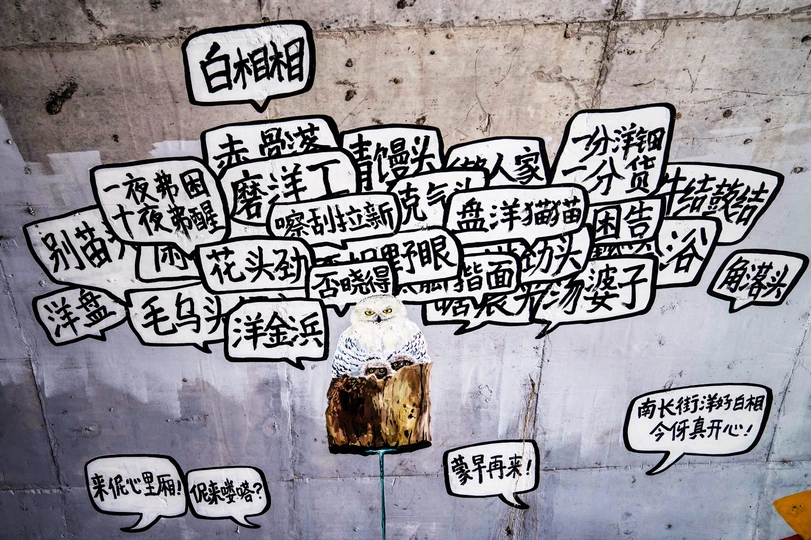 白相相
赤骨落
青馒头
人家
一分洋钿
一分货
一夜弗困
十夜弗醒
磨洋工
嚓刮拉新
克气头
盘洋猫猫
困告
结鼓结
别苗头
花头劲
野眼
劲头
浴
角落头
洋盘
毛乌头
洋金浜
否晓得
揩面
汤婆子
南长街洋好白相
今伢真开心!
来伲心里厢!
伲来喽嗒?
蒙早再来!